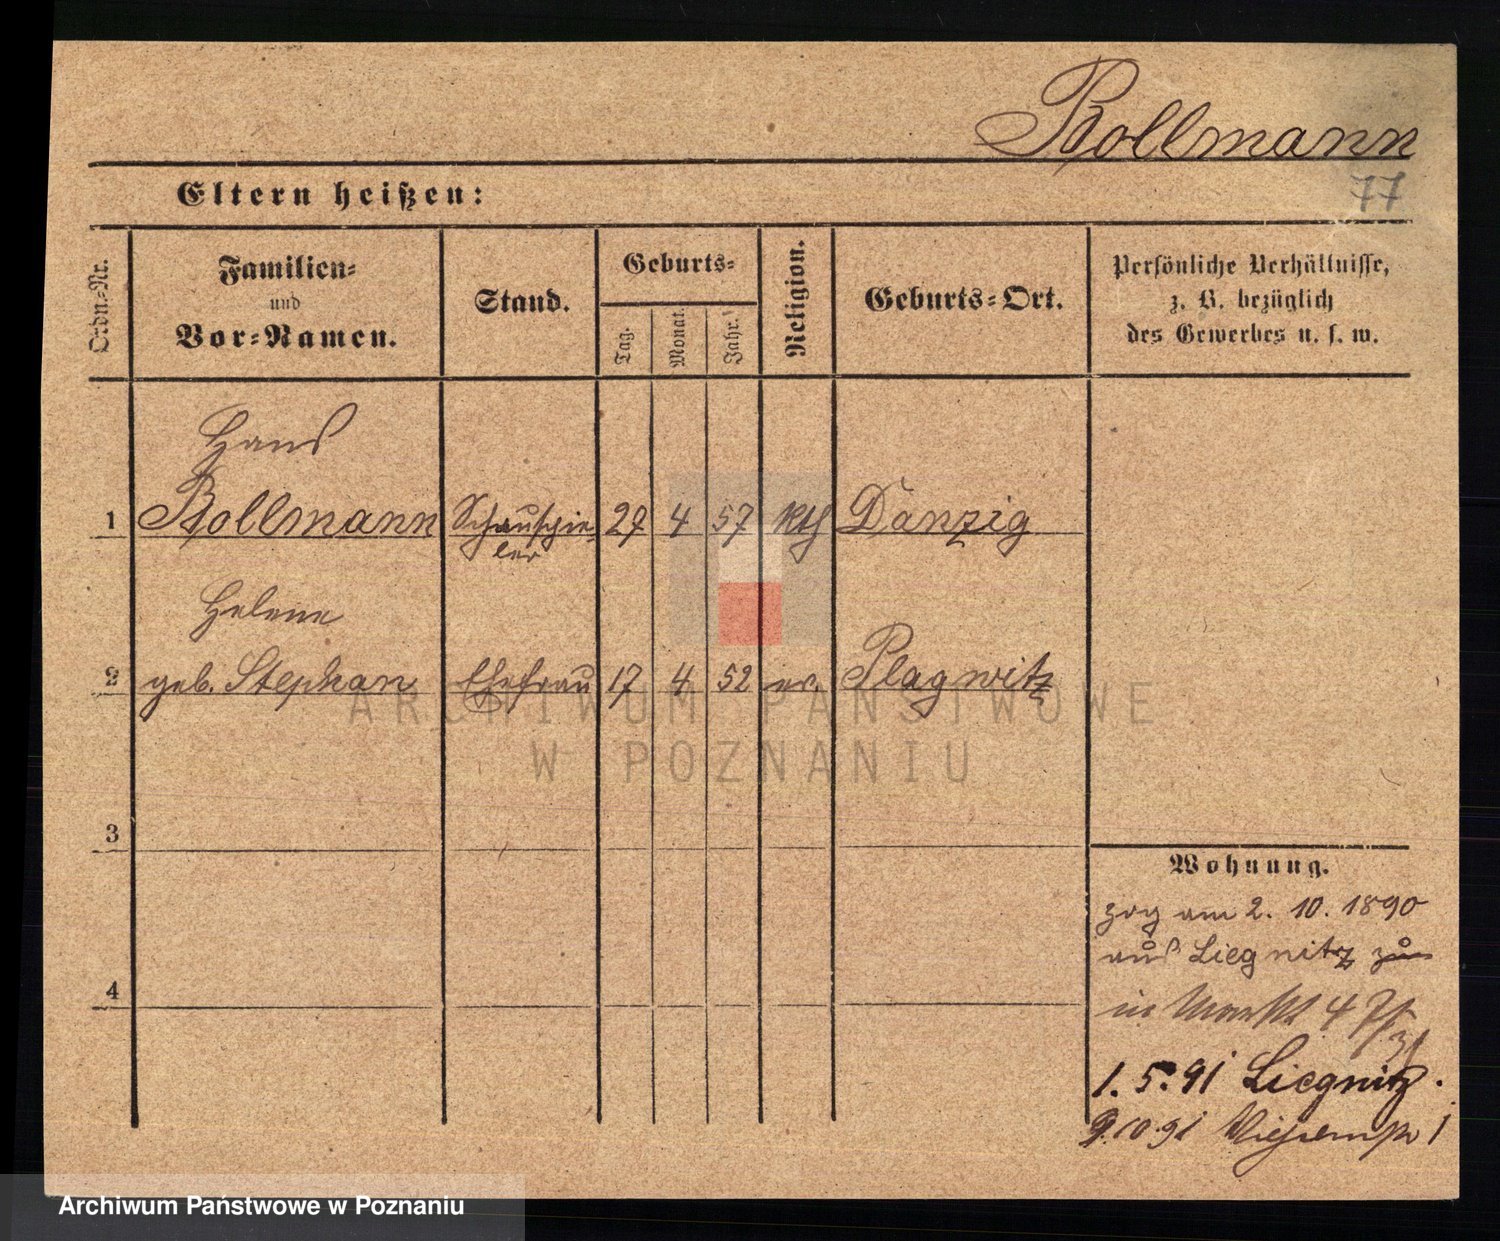 Bollmann
77
Eltern heißen:
Ordn.-Nr.
Familien-
und
Vor-Namen.
Stand.
Geburts-
Tag.
Monat.
Jahr.
Religion.
Geburts-Ort.
Persönliche Verhältnisse,
z. B. bezüglich
des Gewerbes u. s. w.
Hans
1 Bollmann Schauspie- 27 4 57 kth Danzig
ler
Helene
2 geb. Stephan Ehefrau 17 4 52 ev. Plagwitz
3
4
Wohnung.
zog am 2. 10. 1890
aus Liegnitz zu
in Markt 4
1. 5. 91 Liegnitz.
9. 10. 91
ARCHIWUM PAŃSTWOWE
W POZNANIU
Archiwum Państwowe w Poznaniu